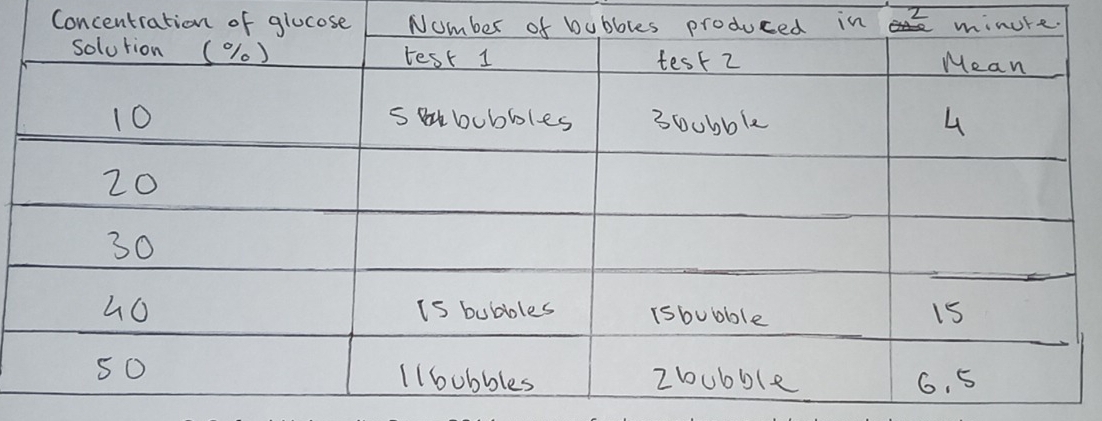 Concentration of glucose Number of bubbles produced in 2 minute.
solution (%) test 1 test 2 Mean
10 5 bubbles 3bubble 4
20
30
40 15 bubbles 15bubble 15
50 11bubbles 2bubble 6.5